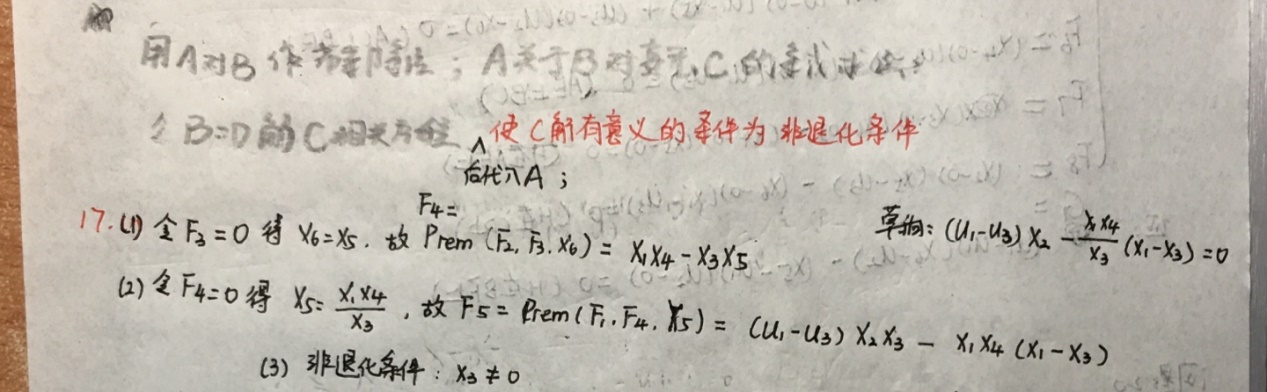 用A对B作带余除法；A关于B对变元C的余式求法：
令B=0的C相关方程∧使C解有意义的条件为非退化条件
后代入A；
17.(1) 令F₃=0 得 X₆=X₅，故 F₄= Prem(F₂,F₃,X₆)= X₁X₄-X₃X₅
草稿：(U₁-U₃)X₂-\frac{X₁X₄}{X₃}(X₁-X₃)=0
(2) 令F₄=0 得 X₅=\frac{X₁X₄}{X₃}，故 F₅= Prem(F₁,F₄,X₅)= (U₁-U₃)X₂X₃ - X₁X₄(X₁-X₃)
(3) 非退化条件：X₃≠0